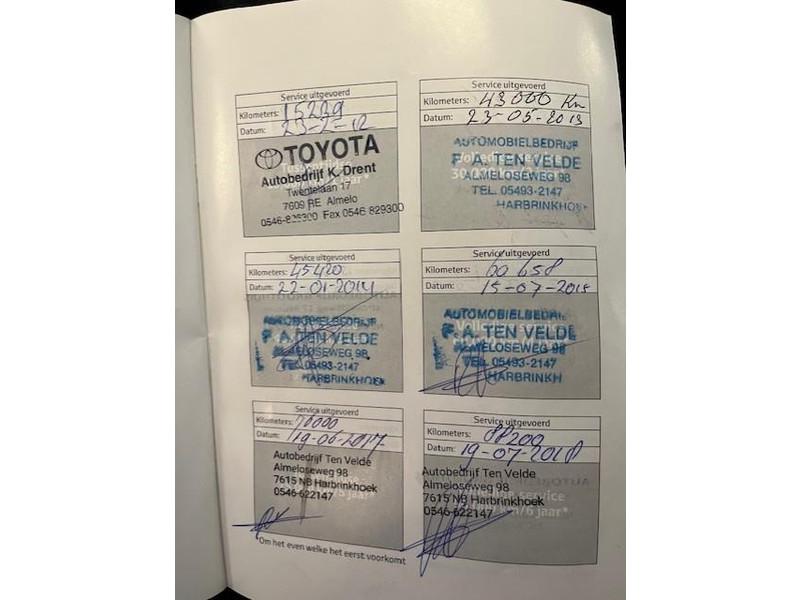 Service uitgevoerd
Kilometers: 15229
Datum: 23-2-12
TOYOTA
Autobedrijf K. Drent
Twentelaan 17
7609 RE Almelo
0546-829300 Fax 0546 829300
Service uitgevoerd
Kilometers: 43000 Km
Datum: 23-05-2013
AUTOMOBIELBEDRIJF
F. A. TEN VELDE
ALMELOSEWEG 98
TEL. 05493-2147
HARBRINKHOEK
Service uitgevoerd
Kilometers: 45420
Datum: 22-01-2014
AUTOMOBIELBEDRIJF
F. A. TEN VELDE
ALMELOSEWEG 98
TEL. 05493-2147
HARBRINKHOEK
Service uitgevoerd
Kilometers: 60 658
Datum: 15-07-2015
AUTOMOBIELBEDRIJF
F. A. TEN VELDE
ALMELOSEWEG 98
TEL. 05493-2147
HARBRINKH
Service uitgevoerd
Kilometers: 76000
Datum: 19-06-2017
Autobedrijf Ten Velde
Almeloseweg 98
7615 NB Harbrinkhoek
0546-622147
jaar*
Service uitgevoerd
Kilometers: 88200
Datum: 19-07-2018
Autobedrijf Ten Velde
Almeloseweg 98
7615 NB Harbrinkhoek
service
0546-622147
km/6 jaar*
Om het even welke het eerst voorkomt